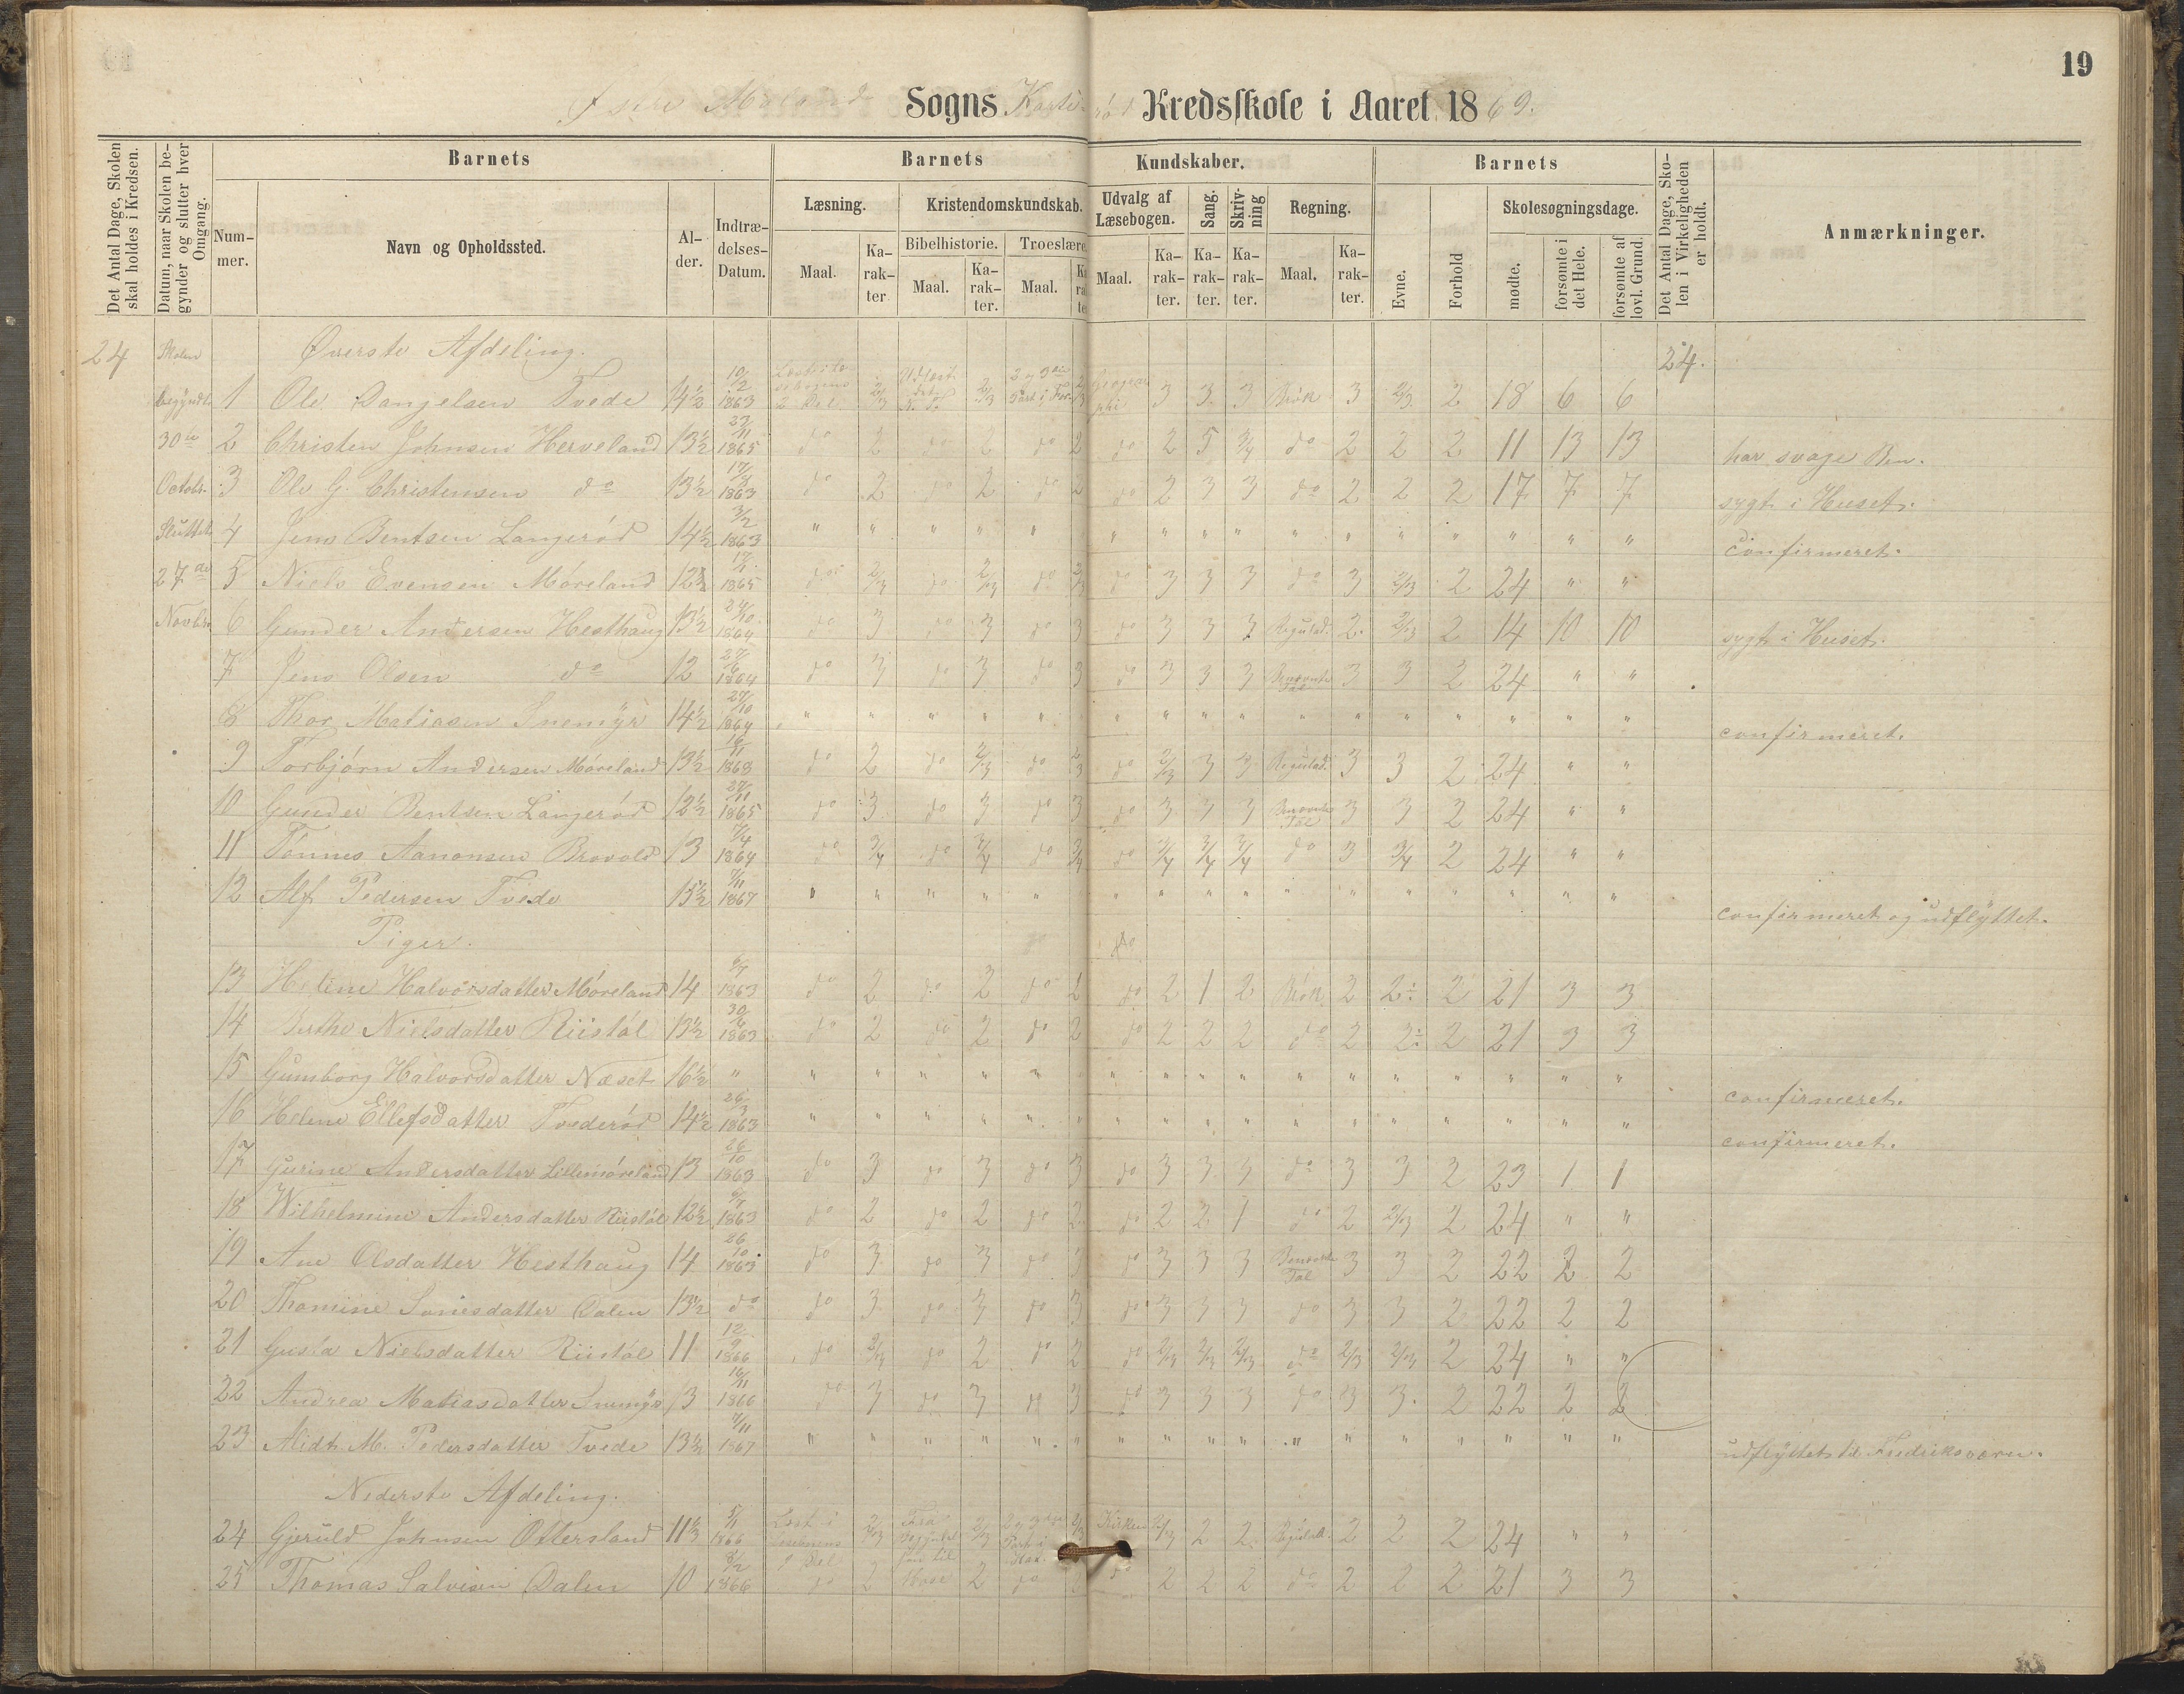 19
Østre Molands Sogns Kredsskole i Aaret 1869.
Det Antal Dage, Skolen skal holdes i Kredsen.
Datum, naar Skolen begynder og slutter hver Omgang.
Barnets
Nummer.
Navn og Opholdssted.
Alder.
Indtrædelses-Datum.
Barnets Kundskaber.
Læsning.
Maal.
Karakter
Kristendomskundskab.
Bibelhistorie.
Maal.
Karakter.
Troeslære.
Maal.
Karakter
Udvalg af Læsebogen.
Maal.
Karakter.
Sang.
Karakter.
Skrivning
Karakter.
Regning.
Maal.
Karakter.
Barnets
Evne.
Forhold
Skolesøgningsdage.
mødte.
forsømte i det Hele.
forsømte af lovl. Grund.
Det Antal Dage, Skolen i Virkeligheden er holdt.
Anmærkninger.
24 Skolen Øverste Afdeling. 24.
begyndte 1 Ole Danjelsen Tvede 14½ 10/2 1863 3 3 3 Brøk 3 2/3 2 18 6 6
30te 2 Christen Johnsen Herveland 13½ 23/11 1865 do 2 do 2 do 2 do 2 5 3/4 do 2 2 2 11 13 13 har svage Ben.
Octobr. 3 Ole G. Christensen do 13½ 1863 do 2 do 2 do 2 do 2 3 3 do 2 2 2 17 7 7 sygt i Huset.
Sluttet 4 Jens Bentsen Langerød 14½ 3/2 1863 " " " " " " " " " " " " " " " " " confirmeret.
27de 5 Niels Evensen Møreland 1865 do 2/3 do 2/3 do 2/3 do 3 3 3 do 3 2/3 2 24 " "
Novbr. 6 Gunder Andersen Hesthaug 13½ 24/10 1864 do 3 do 3 do 3 do 3 3 3 Regulad. 2 2/3 2 14 10 10 sygt i Huset.
7 Jens Olsen do 12 27/6 1864 do 3 do 3 do 3 do 3 3 3 Benævnte Tal 3 3 2 24 " "
8 Thor Matiasen Snemyr 14½ 24/10 1864 " " " " " " " " " " " " " " " " " confirmeret.
9 Torbjørn Andersen Møreland 13½ 16/11 1863 do 2 do 2/3 do 2/3 do 2/3 3 3 Regulad. 3 3 2 24 " "
10 Gunder Bentsen Langerød 12½ 27/11 1865 do 3 do 3 do 3 do 3 3 3 Benævnte Tal 3 3 2 24 " "
11 Tønnes Aanonsen Brovold 13 1864 do 3/4 do 3/4 do 3/4 do 3/4 3/4 3/4 do 3 3/4 2 24 " "
12 Alf Pedersen Tvede 15½ 7/11 1867 " " " " " " " " " " " " " " " " " confirmeret og udflyttet.
Piger.
13 Helene Halvorsdatter Møreland 14 6/7 1863 do 2 do 2 do 2 do 2 1 2 Brøk 2 2 2 21 3 3
14 Berthe Nielsdatter Riistøl 13½ 30/6 1863 do 2 do 2 do 2 do 2 2 2 do 2 2 2 21 3 3
15 Gunborg Halvorsdatter Næset 16½ " " " " " " " " " " " " " " " " " " confirmeret.
16 Helene Ellefsdatter Tvederød 14½ 26/3 1863 " " " " " " " " " " " " " " " " " confirmeret.
17 Gurine Andersdatter Lillemøreland 13 26/10 1863 do 3 do 3 do 3 do 3 3 3 do 3 3 2 23 1 1
18 Wilhelmine Andersdatter Riistøl 12½ 6/7 1863 do 2 do 2 do 2 do 2 2 1 do 2 2/3 2 24 " "
19 Ane Olsdatter Hesthaug 14 26/10 1863 do 3 do 3 do 3 do 3 3 3 Benævnte Tal 3 3 2 22 2 2
20 Thomine Sonesdatter Dalen 13½ do do 3 do 3 do 3 do 3 3 3 do 3 3 2 22 2 2
21 Nielsdatter Riistøl 11 12/9 1866 do 2/3 do 2 do 2 do 2/3 2/3 2/3 do 2/3 2/3 2 24 " "
22 Andrea Matiasdatter Snemyr 13 16/11 1866 do 3 do 3 do 3 do 3 3 3 do 3 3 2 22 2 2
23 Alidt M. Pedersdatter Tvede 13½ 7/11 1867 " " " " " " " " " " " " " " " " " udflyttet til Fredriksværn.
Nederste Afdeling.
24 Gjeruld Johnsen Ottersland 11½ 5/11 1866 Læst i Læsebogens 1 Del 2/3 Fra 2/3 2/3 Kirkens 2/3 2 2 Regulad. 2 2 2 24 " "
25 Thomas Salvesen Dalen 10 8/2 1866 do 2 2 do do 2 2 2 do 2 2 2 21 3 3